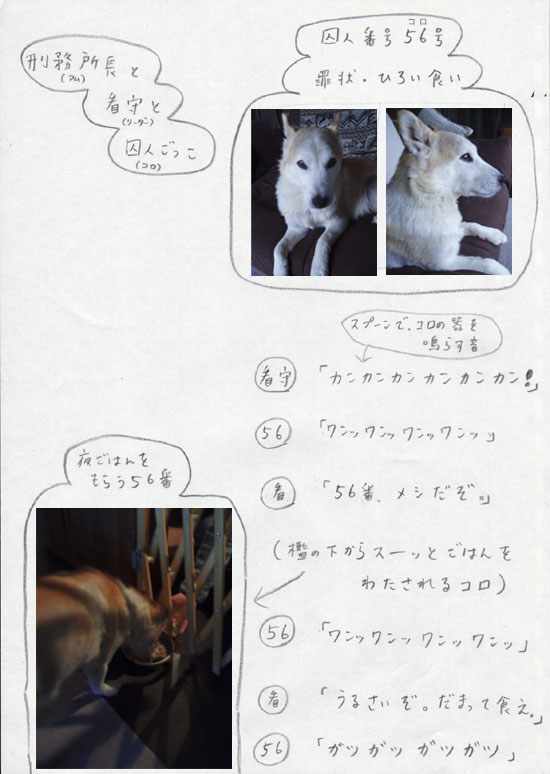 刑務所長と
(アム)
看守と
(リーダー)
囚人ごっこ
(コロ)
コロ
囚人番号56号
罪状・ひろい食い
スプーンで、コロの器を
鳴らす音
看守「カンカンカンカンカンカン!」
56「ワンッワンッワンッワンッ」
看「56番、メシだぞ。」
(檻の下からスーッとごはんを
わたされるコロ)
56「ワンッワンッワンッワンッ」
看「うるさいぞ。だまって食え。」
56「ガツガツガツガツ」
夜ごはんを
もらう56番